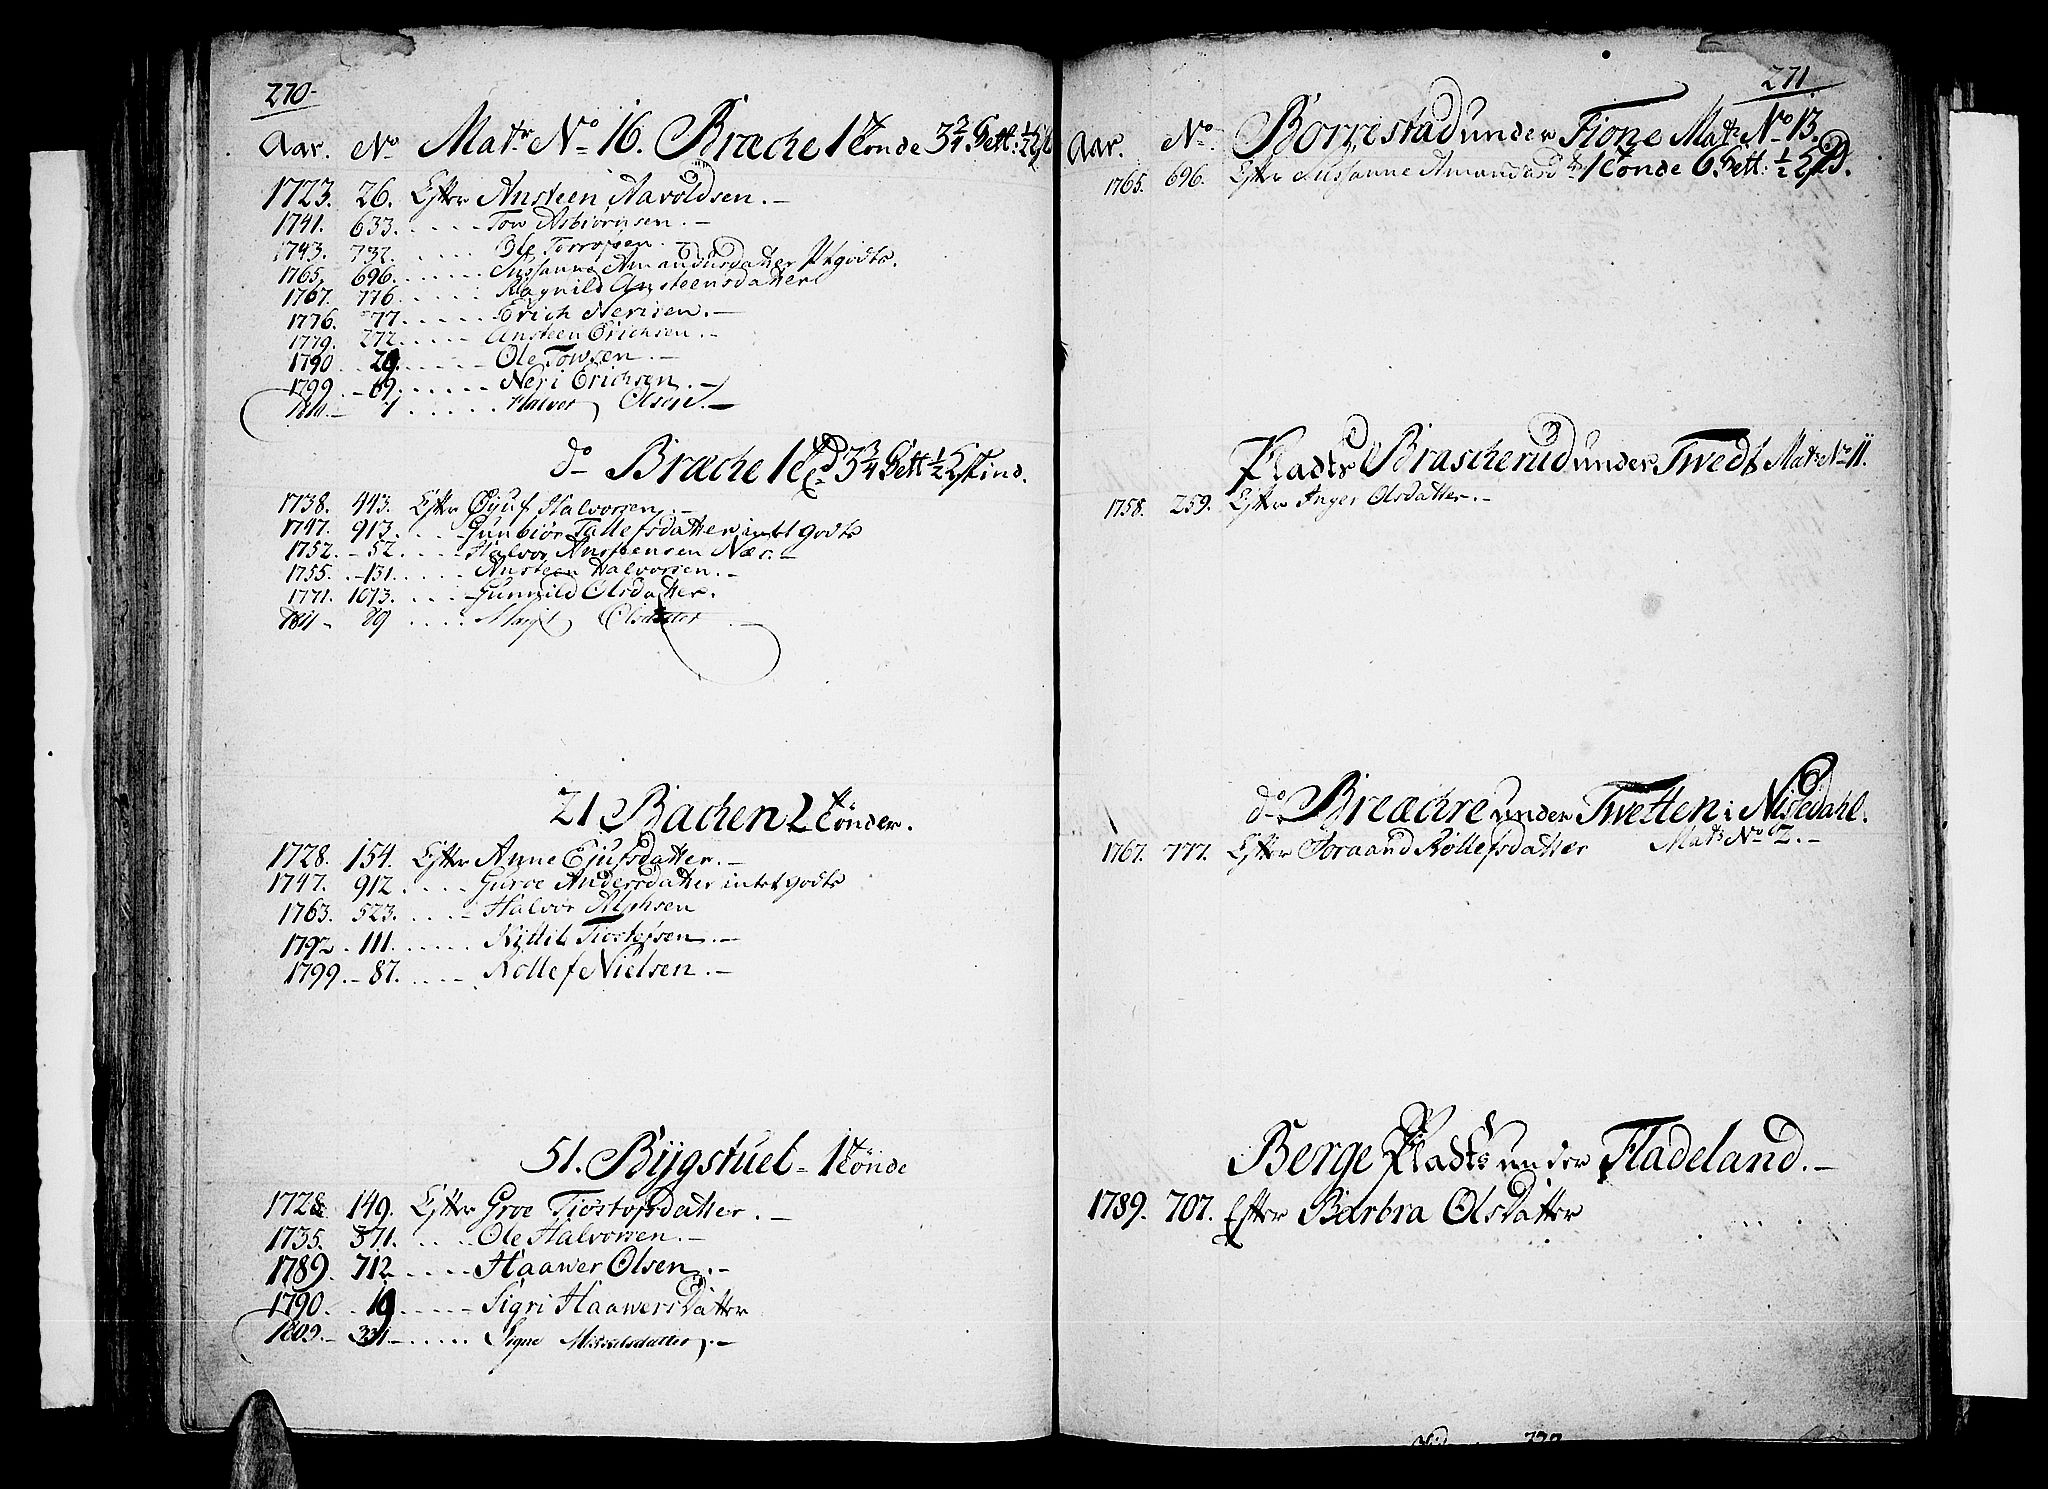 270.
Aar. No Matr No 16. Bræche 1 tønde 3 3/4 Sett: 1/2
1723. 26. Efter Ansteen Aavoldsen. -
1741. 633. . . . . Tow Asbiørnsen. -
1743. 732. . . . . Ole
1765. 696. . . . . Sussanne Amandusdatter Jntgodts.
1767. 776. . . . . Ragnild Ansteensdatter
1776. 77. . . . . Erich Nerisen. -
1779. 272. . . . . Ansteen Erichsen. -
1790 29. . . . . Ole Towsen. -
1799. - 69. . . . . Neri Erichsen. -
1811. - 1 . . . . . Halvor Olsen. -
do Bræche 1 td 3 3/4 Sett 1/2 Skind.
1738. 443. Efter Halvorsen. -
1747. 913. . . . Gunbiør Tallefsdatter intet godts
1752. - 52. . . . Halvor Ansteensen Næs. -
1755. - 131. . . . . Ansteen Halvorsen. -
1771. 1073. . . . Gunnild Olsdatter.
1811 - 89 . . . . Marjt Olsdatter
21 Bachen 2 tønder.
1728. 154. Efter Anne Ejufsdatter. -
1747. 912. . . . . Guroe Andersdatter intet godts
1763. 523. . . . Halvor Alphsen
1792. 111. . . . . . Kittil Tiostefsen. -
1799. - 87. . . . . Rollef Nielsen. -
51. Bÿgstuel - 1 tønde
1728. 149. Efter Groe Tiostofsdatter. -
1735. 371. . . . . Ole Halvorsen. -
1789. 712. . . . . Haawer Olsen. -
1790. 19. . . . . Sigri Haawersdatter
1809. - 331 - . . . . . Signe -
271
Aar. No Borrestad under Fione Matr No 13.
1765. 696. Efter Sussanne Amandusd tr 1 tønde 6 Sett: 1/2
Plads Brascherud under Twedt Matr No 11.
1758. 259. Efter Inger Olsdatter. -
do Breæchre under Twetten i Nissedahl.
1767. 777. Efter Joraand Rollefsdatter Matr No 2. -
Berge Plads under Fladeland. -
1789. 707. Efter Barbra Olsdatter